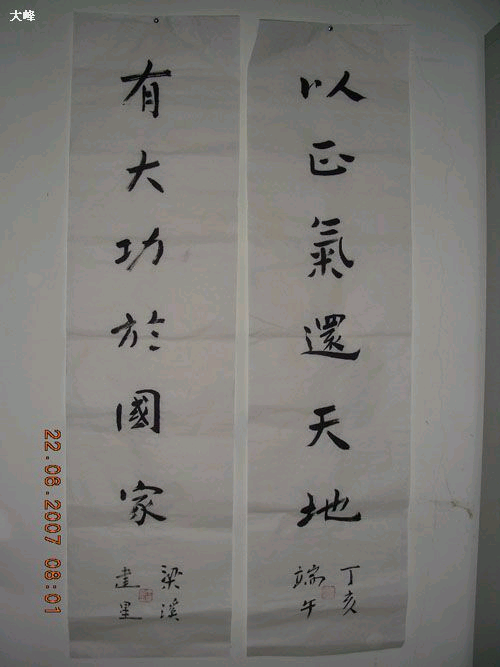 大峰
以正氣還天地
丁亥
端午
有大功於國家
梁溪
書星
22.06.2007 08:01